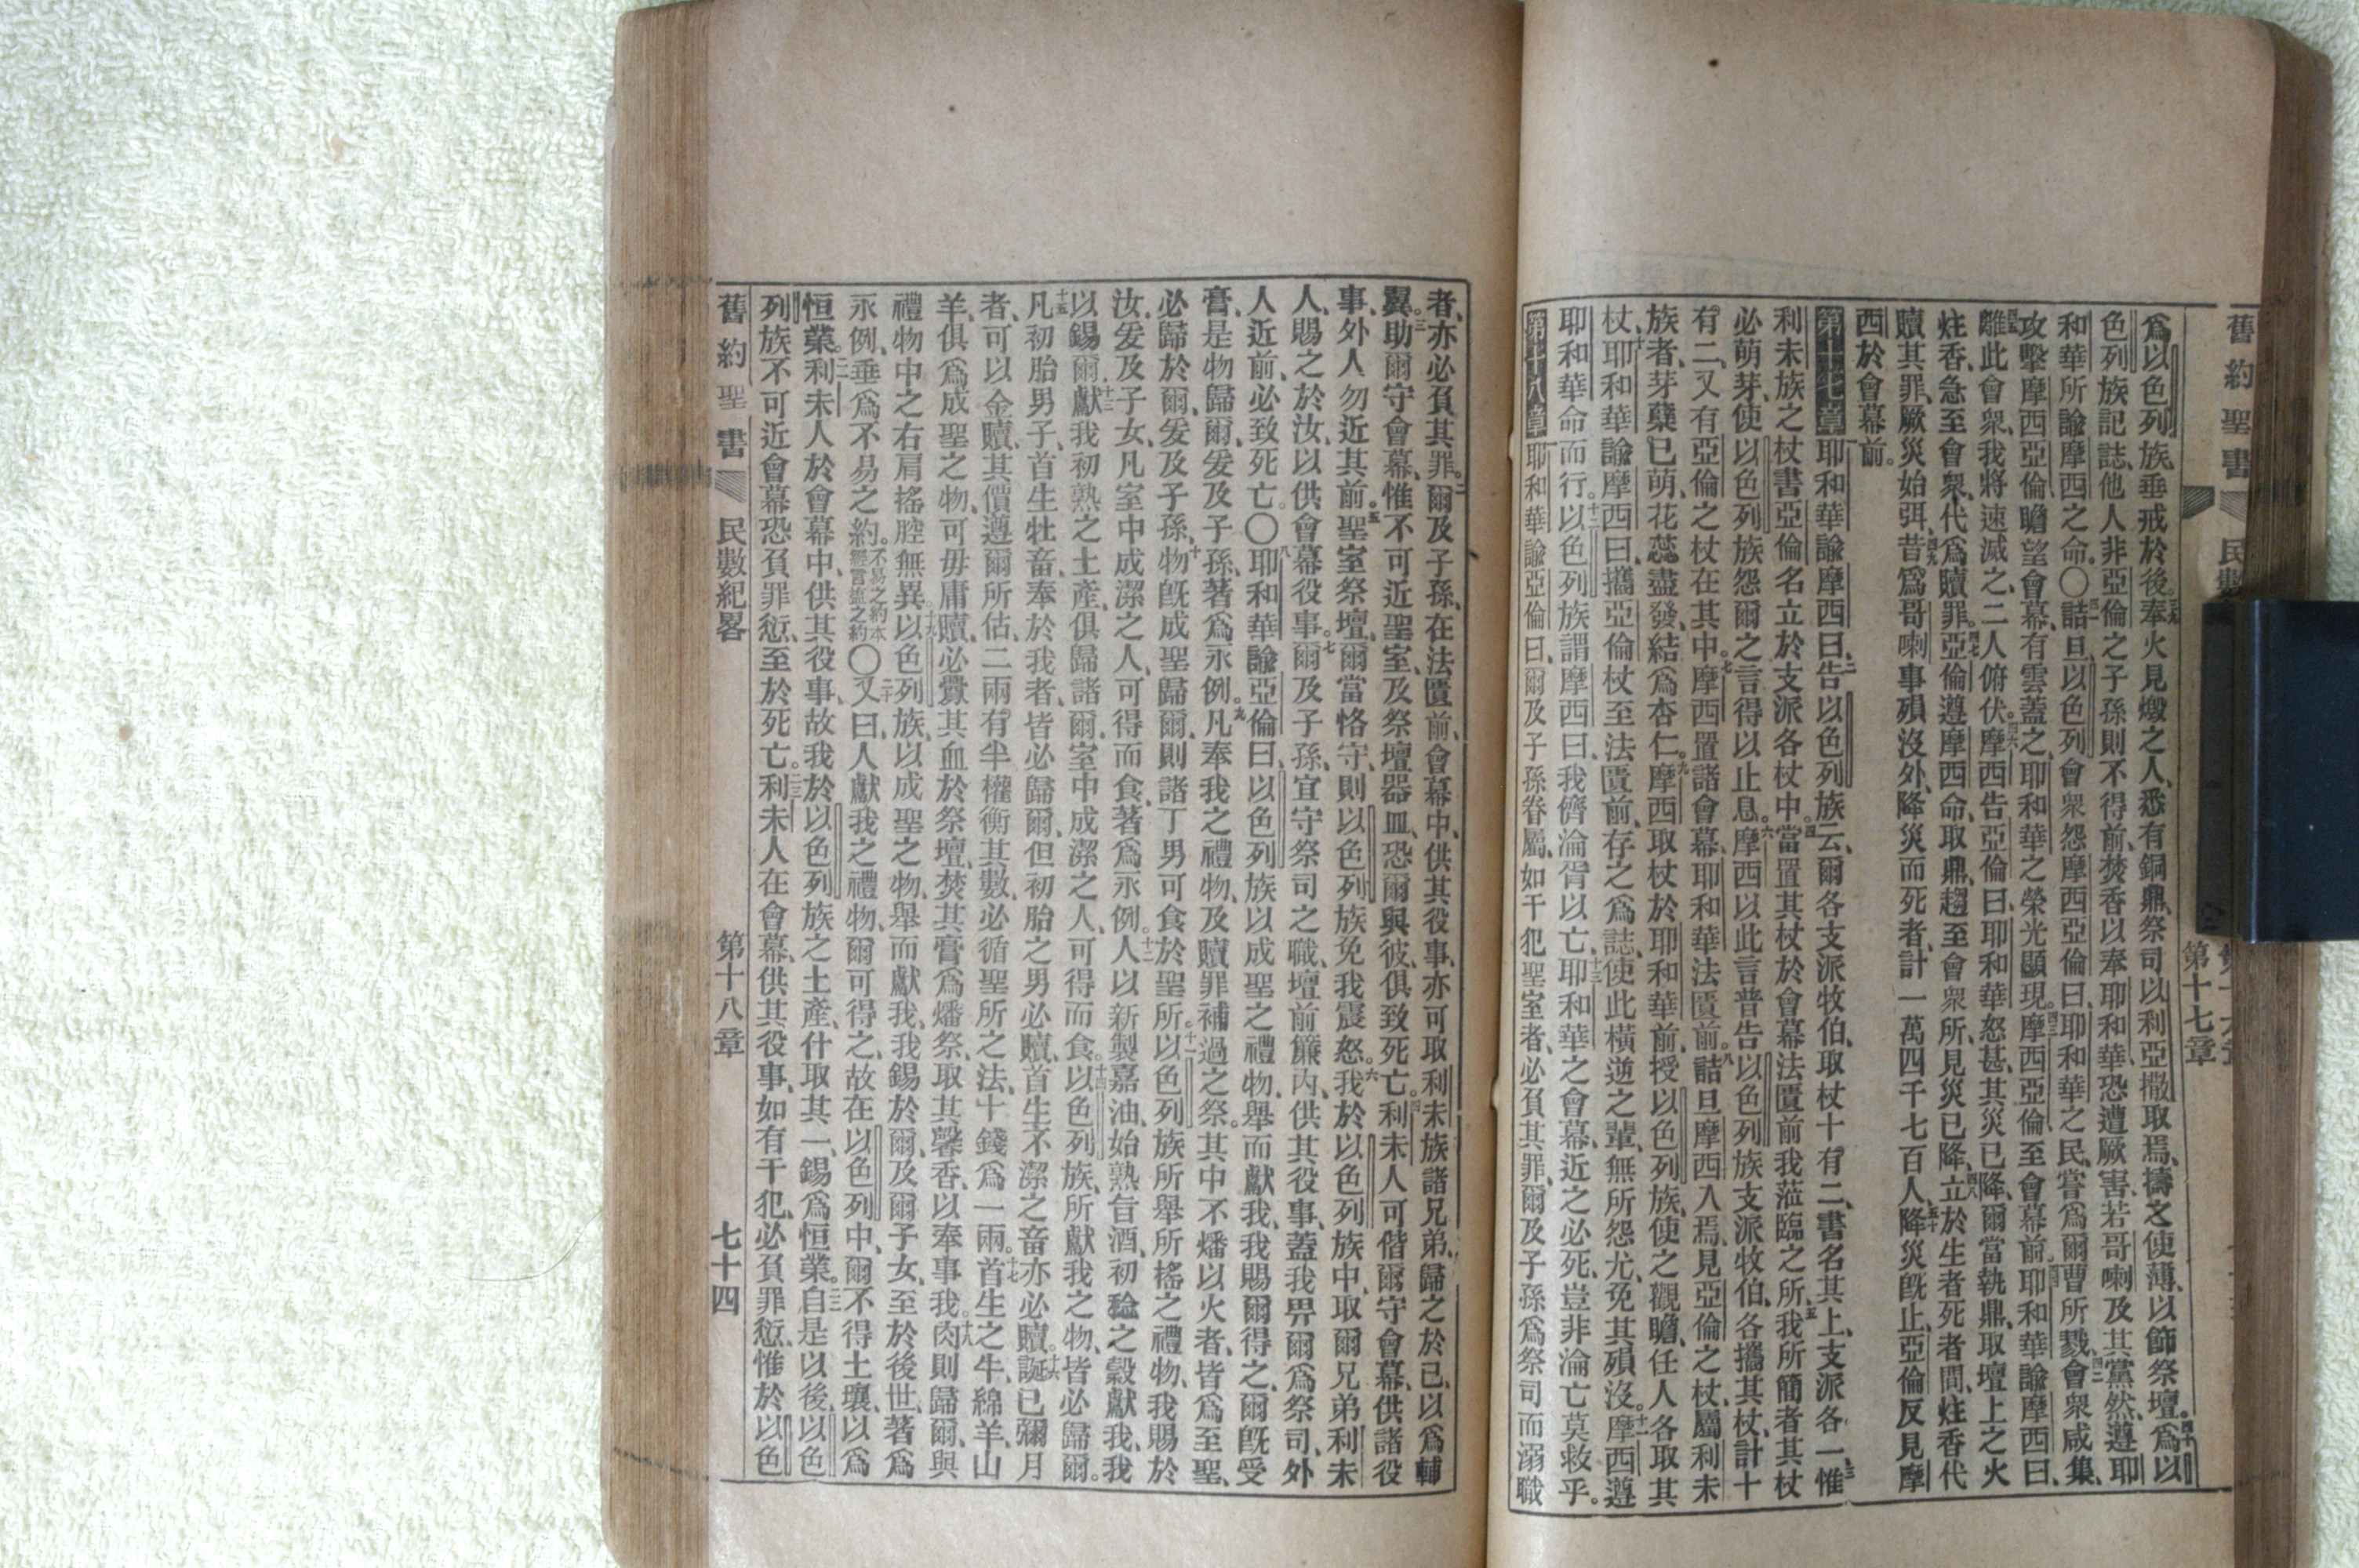 舊約聖書 民數
第十七章
爲以色列族垂戒於後三九奉火見燬之人、悉有銅鼎、祭司以利亞撒取焉、擣之使薄、以飾祭壇。四十爲以
色列族記誌、他人非亞倫之子孫、則不得前、焚香以奉耶和華、恐遭厥害、若哥喇及其黨然、遵耶
和華所諭摩西之命。〇四一詰旦、以色列會衆怨摩西亞倫曰、耶和華之民、嘗爲爾曹所戮、四二會衆咸集、
攻擊摩西亞倫、瞻望會幕、有雲蓋之、耶和華之榮光顯現。四三摩西亞倫至會幕前、四四耶和華諭摩西曰、
四五離此會衆、我將速滅之、二人俯伏。四六摩西告亞倫曰、耶和華怒甚、其災已降、爾當執鼎、取壇上之火
炷香、急至會衆、代爲贖罪。四七亞倫遵摩西命、取鼎、趨至會衆所、見災已降、四八立於生者死者間、炷香代
贖其罪、厥災始弭、四九昔爲哥喇事殞沒外、降災而死者、計一萬四千七百人、五十降災旣止、亞倫反見摩
西於會幕前。
第十七章 耶和華諭摩西曰、二告以色列族云、爾各支派牧伯、取杖十有二、書名其上、支派各一、三惟
利未族之杖、書亞倫名、立於支派各杖中。四當置其杖於會幕法匱前、我蒞臨之所、五我所簡者、其杖
必萌芽、使以色列族怨爾之言、得以止息。六摩西以此言普告以色列族、支派牧伯、各攜其杖、計十
有二、又有亞倫之杖在其中。七摩西置諸會幕、耶和華法匱前。八詰旦摩西入焉、見亞倫之杖、屬利未
族者、芽蘗已萌、花蕊盡發、結爲杏仁。九摩西取杖於耶和華前、授以色列族、使之觀瞻、任人各取其
杖、十耶和華諭摩西曰、攜亞倫杖至法匱前、存之爲誌、使此橫逆之輩、無所怨尤、免其殞沒。十一摩西遵
耶和華命而行。十二以色列族謂摩西曰、我儕淪胥以亡、十三耶和華之會幕、近之必死、豈非淪亡莫救乎。
第十八章 耶和華諭亞倫曰、爾及子孫眷屬、如干犯聖室者、必負其罪、爾及子孫爲祭司而溺職
者、亦必負其罪。二爾及子孫、在法匱前、會幕中、供其役事、亦可取利未族諸兄弟、歸之於己、以爲輔
翼。三助爾守會幕、惟不可近聖室、及祭壇器皿、恐爾與彼俱致死亡。四利未人可偕爾守會幕、供諸役
事、外人勿近其前。五聖室祭壇、爾當恪守、則以色列族免我震怒。六我於以色列族中、取爾兄弟利未
人、賜之於汝、以供會幕役事。七爾及子孫、宜守祭司之職、壇前簾內、供其役事、蓋我畀爾爲祭司、外
人近前、必致死亡。〇八耶和華諭亞倫曰、以色列族以成聖之禮物、舉而獻我、我賜爾得之、爾旣受
膏、是物歸爾、爰及子孫、著爲永例。九凡奉我之禮物、及贖罪補過之祭。其中不燔以火者、皆爲至聖、
必歸於爾、爰及子孫、十物旣成聖歸爾、則諸丁男可食於聖所。十一以色列族所舉所搖之禮物、我賜於
汝、爰及子女、凡室中成潔之人、可得而食、著爲永例。十二人以新製嘉油、始熟旨酒、初稔之穀獻我、我
以錫爾、十三獻我初熟之土產、俱歸諸爾、室中成潔之人、可得而食。十四以色列族所獻我之物、皆必歸爾。
十五凡初胎男子、首生牡畜、奉於我者、皆必歸爾、但初胎之男必贖、首生不潔之畜亦必贖。十六誕已彌月
者、可以金贖、其價遵爾所估、二兩有半、權衡其數、必循聖所之法、十錢爲一兩。十七首生之牛、綿羊、山
羊、俱爲成聖之物、可毋庸贖、必釁其血於祭壇、焚其膏爲燔祭、取其馨香、以奉事我。十八肉則歸爾、與
禮物中之右肩搖腔無異。十九以色列族、以成聖之物、舉而獻我、我錫於爾、及爾子女、至於後世、著爲
永例、垂爲不易之約。不易之約本經言鹽之約〇二十又曰、人獻我之禮物、爾可得之、故在以色列中、爾不得土壤、以爲
恒業。二一利未人於會幕中、供其役事、故我於以色列族之土產、什取其一、錫爲恒業。二二自是以後、以色
列族不可近會幕、恐負罪愆、至於死亡。二三利未人在會幕、供其役事、如有干犯、必負罪愆、惟於以色
舊約聖書 民數紀畧 第十八章 七十四